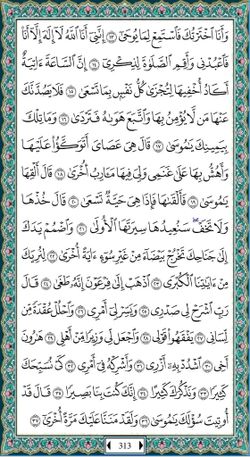 وَأَنَا ٱخْتَرْتُكَ فَٱسْتَمِعْ لِمَا يُوحَىٰٓ ١٣ إِنَّنِىٓ أَنَا ٱللَّهُ لَآ إِلَٰهَ إِلَّآ أَنَا۠
فَٱعْبُدْنِى وَأَقِمِ ٱلصَّلَوٰةَ لِذِكْرِىٓ ١٤ إِنَّ ٱلسَّاعَةَ ءَاتِيَةٌ
أَكَادُ أُخْفِيهَا لِتُجْزَىٰ كُلُّ نَفْسٍۭ بِمَا تَسْعَىٰ ١٥ فَلَا يَصُدَّنَّكَ
عَنْهَا مَن لَّا يُؤْمِنُ بِهَا وَٱتَّبَعَ هَوَىٰهُ فَتَرْدَىٰ ١٦ وَمَا تِلْكَ
بِيَمِينِكَ يَٰمُوسَىٰ ١٧ قَالَ هِىَ عَصَاىَ أَتَوَكَّؤُا۟ عَلَيْهَا
وَأَهُشُّ بِهَا عَلَىٰ غَنَمِى وَلِىَ فِيهَا مَـَٔارِبُ أُخْرَىٰ ١٨ قَالَ أَلْقِهَا
يَٰمُوسَىٰ ١٩ فَأَلْقَىٰهَا فَإِذَا هِىَ حَيَّةٌ تَسْعَىٰ ٢٠ قَالَ خُذْهَا
وَلَا تَخَفْ سَنُعِيدُهَا سِيرَتَهَا ٱلْأُولَىٰ ٢١ وَٱضْمُمْ يَدَكَ
إِلَىٰ جَنَاحِكَ تَخْرُجْ بَيْضَآءَ مِنْ غَيْرِ سُوٓءٍ ءَايَةً أُخْرَىٰ ٢٢ لِنُرِيَكَ
مِنْ ءَايَٰتِنَا ٱلْكُبْرَى ٢٣ ٱذْهَبْ إِلَىٰ فِرْعَوْنَ إِنَّهُۥ طَغَىٰ ٢٤ قَالَ
رَبِّ ٱشْرَحْ لِى صَدْرِى ٢٥ وَيَسِّرْ لِىٓ أَمْرِى ٢٦ وَٱحْلُلْ عُقْدَةً مِّن
لِّسَانِى ٢٧ يَفْقَهُوا۟ قَوْلِى ٢٨ وَٱجْعَل لِّى وَزِيرًا مِّنْ أَهْلِى ٢٩ هَٰرُونَ
أَخِى ٣٠ ٱشْدُدْ بِهِۦٓ أَزْرِى ٣١ وَأَشْرِكْهُ فِىٓ أَمْرِى ٣٢ كَىْ نُسَبِّحَكَ
كَثِيرًا ٣٣ وَنَذْكُرَكَ كَثِيرًا ٣٤ إِنَّكَ كُنتَ بِنَا بَصِيرًا ٣٥ قَالَ قَدْ
أُوتِيتَ سُؤْلَكَ يَٰمُوسَىٰ ٣٦ وَلَقَدْ مَنَنَّا عَلَيْكَ مَرَّةً أُخْرَىٰٓ ٣٧
313